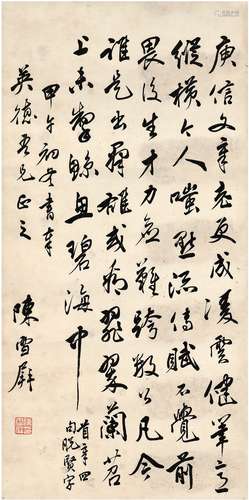 庾信文章老更成凌雲健筆意
縱橫今人嗤點流傳賦不覺前
畏後生才力應難跨數公凡今
誰是出群雄或看翡翠蘭苕
上未掣鯨魚碧海中
首章四
句脫賢字
甲午初夏書奉
英德吾兄正之
陳雪屏